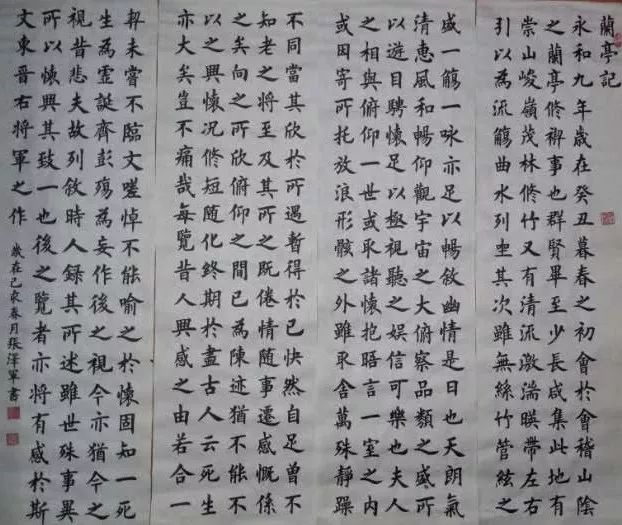 蘭亭記
永和九年歲在癸丑暮春之初會於會稽山陰
之蘭亭修禊事也群賢畢至少長咸集此地有
崇山峻嶺茂林修竹又有清流激湍暎帶左右
引以為流觴曲水列坐其次雖無絲竹管絃之
盛一觴一咏亦足以暢敘幽情是日也天朗氣
清惠風和暢仰觀宇宙之大俯察品類之盛所
以遊目騁懷足以極視聽之娛信可樂也夫人
之相與俯仰一世或取諸懷抱晤言一室之內
或因寄所托放浪形骸之外雖取舍萬殊靜躁
不同當其欣於所遇暫得於己快然自足曾不
知老之將至及其所之既倦情隨事遷感慨係
之矣向之所欣俯仰之間已為陳迹猶不能不
以之興懷況修短随化終期於盡古人云死生
亦大矣豈不痛哉每覽昔人興感之由若合一
契未嘗不臨文嗟悼不能喻之於懷固知一死
生為虛誕齊彭殤為妄作後之視今亦猶今之
視昔悲夫故列敘時人錄其所述雖世殊事異
所以懷興其致一也後之覽者亦將有感於斯
文東晉右將軍之作
歲在己亥春月張澤軍書